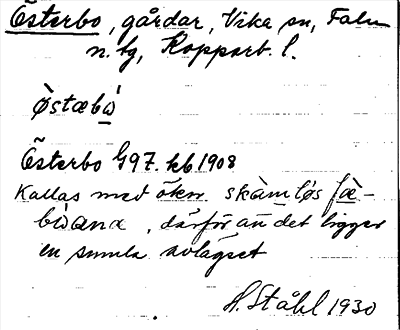 Österbo, gårdar, Vika sn, Falu
n. tg, Kopparb. l.
òstæbὼ
Österbo G97. kb 1908
Kallas med ökn. skàmløs fæ-
bωana, därför att det ligger
en smula avlägset
H. Ståhl 1930